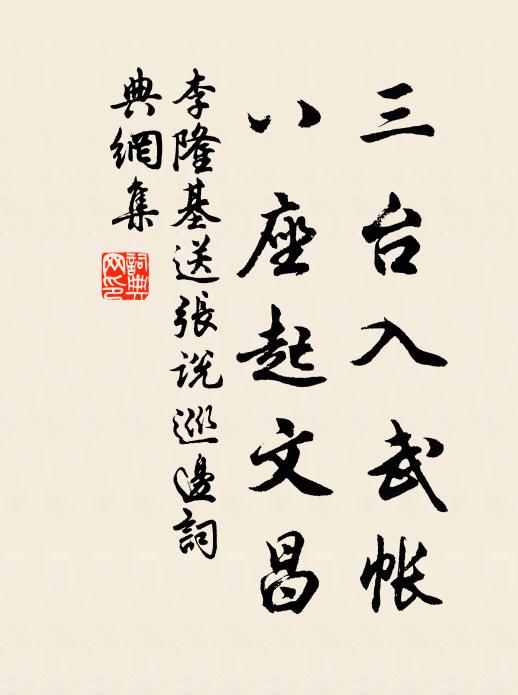 三台入武帐
八座起文昌
李隆基送張說巡邊詞
典網集
詞典網印